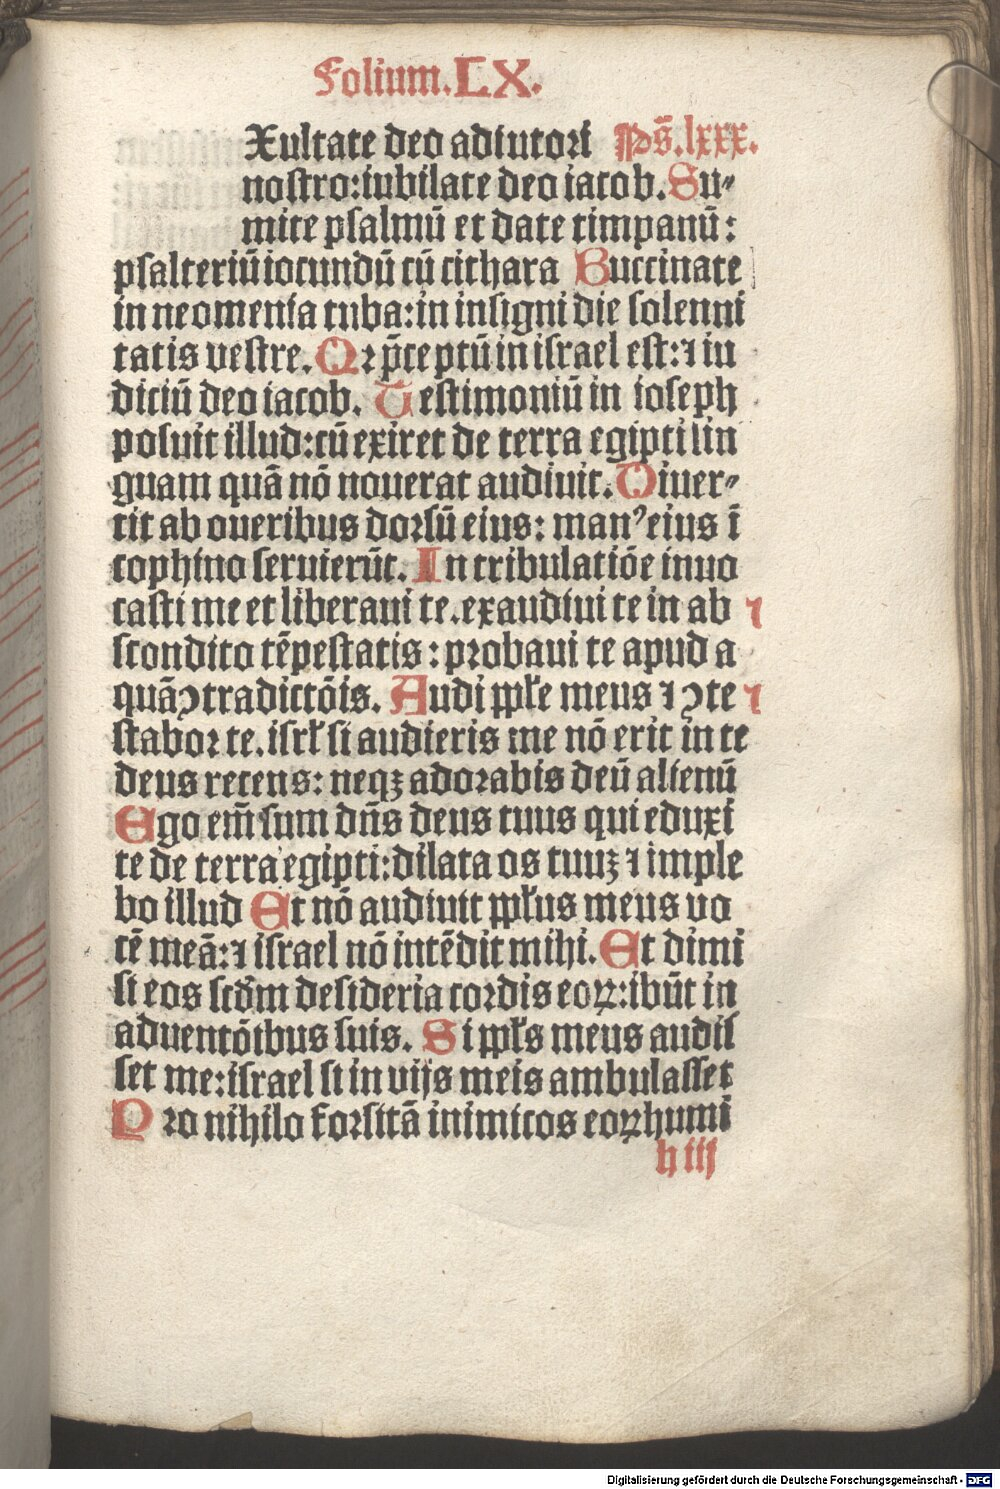 Folium.LX.
Xultate deo adiutori Ps̄.lxxx.
nostro:iubilate deo iacob.Su⸗
mite psalmū et date timpanū:
psalteriū iocundū cū cithara Buccinate
in neomenia tuba:in insigni die solenni
tatis vestre. Qꝛ p̄ceptū in israel est:⁊ iu
diciū deo iacob. Testimoniū in ioseph
posuit illud:cū exiret de terra egipti lin
guam quā nō nouerat audiuit.Diuer⸗
tit ab oneribus doꝛsū eius: manꝰ eius ī
cophino seruierūt. In tribulatiōe inuo
casti me et liberaui te.exaudiui te in ab ⁊
scondito tēpestatis:pꝛobaui te apud a
quā ꝯtradictōis. Audi ppl'e meus ⁊ ꝯte ⁊
staboꝛ te.isrl' si audieris me nō erit in te
deus recens: neqꝫ adoꝛabis deū alienū
Ego em̄ sum dn̄s deus tuus qui eduxi
te de terra egipti:dilata os tuuꝫ ⁊ imple
bo illud Et nō audiuit ppl'us meus vo
cē meā:⁊ israel nō intēdit mihi.Et dimi
si eos scd'm desideria coꝛdis eoꝝ:ibūt in
aduentōibus suis. Si ppl's meus audis
set me:israel si in vijs meis ambulasset
Pꝛo nihilo foꝛsitā inimicos eoꝝ humi
h iij
Digitalisierung gefördert durch die Deutsche Forschungsgemeinschaft - DFG